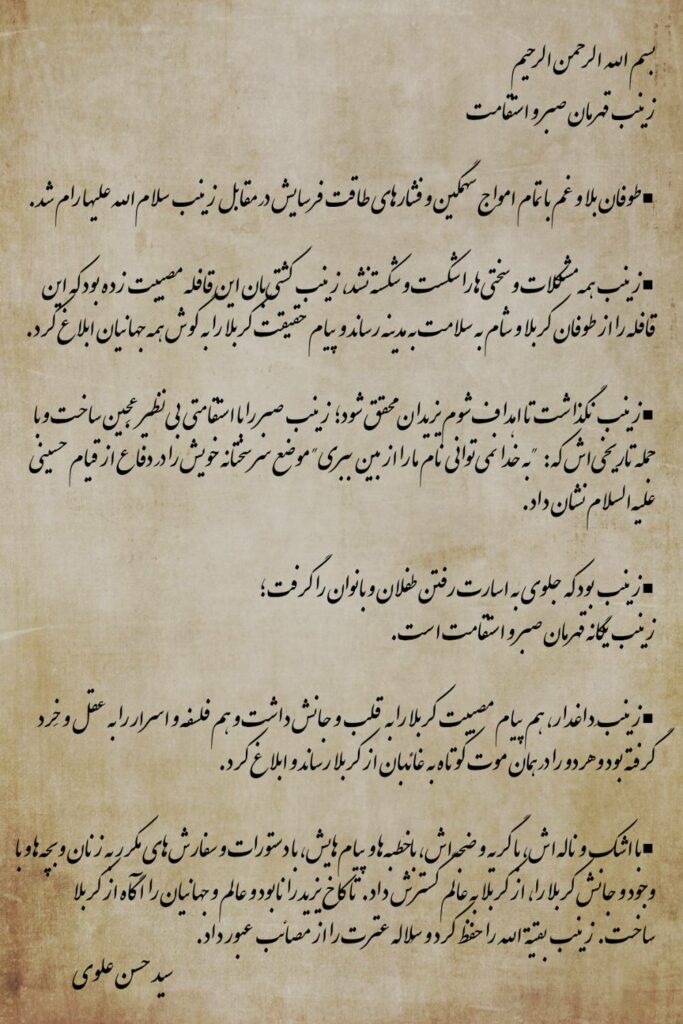 بسم الله الرحمن الرحیم
زینب قهرمان صبر و استقامت
▪طوفان بلا و غم با تمام امواج سهمگین و فشارهای طاقت فرسایش در مقابل زینب سلام الله علیها رام شد.
▪زینب همه مشکلات و سختی ها را شکست و شکسته نشد، زینب کشتی بان این قافله مصیبت زده بود که این
قافله را از طوفان کربلا و شام به سلامت به مدینه رساند و پیام حقیقت کربلا را به گوش همه جهانیان ابلاغ کرد.
▪زینب نگذاشت تا اهداف شوم یزیدان محقق شود؛ زینب صبر را با استقامتی بی نظیر عجین ساخت و با
جمله تاریخی اش که: "به خدا نمی توانی نام ما را از بین ببری" موضع سرسختانه خویش را در دفاع از قیام حسینی
علیه السلام نشان داد.
▪زینب بود که جلوی به اسارت رفتن طفلان و بانوان را گرفت؛
زینب یگانه قهرمان صبر و استقامت است.
▪زینب داغدار، هم پیام مصیبت کربلا را به قلب و جانش داشت و هم فلسفه و اسرار را به عقل و خرد
گرفته بود و هر دو را در همان موت کوتاه به غائبان از کربلا رساند و ابلاغ کرد.
▪با اشک و ناله اش، با گریه و ضجه اش، با خطبه ها و پیام هایش، با دستورات و سفارش های مکرر به زنان و بچه ها و با
وجود و جانش کربلا را، از کربلا به عالم گسترش داد. تا کاخ یزید را نابود و عالم و جهانیان را آگاه از کربلا
ساخت. زینب بقیة الله را حفظ کرد و سلاله عترت را از مصائب عبور داد.
سید حسن علوی